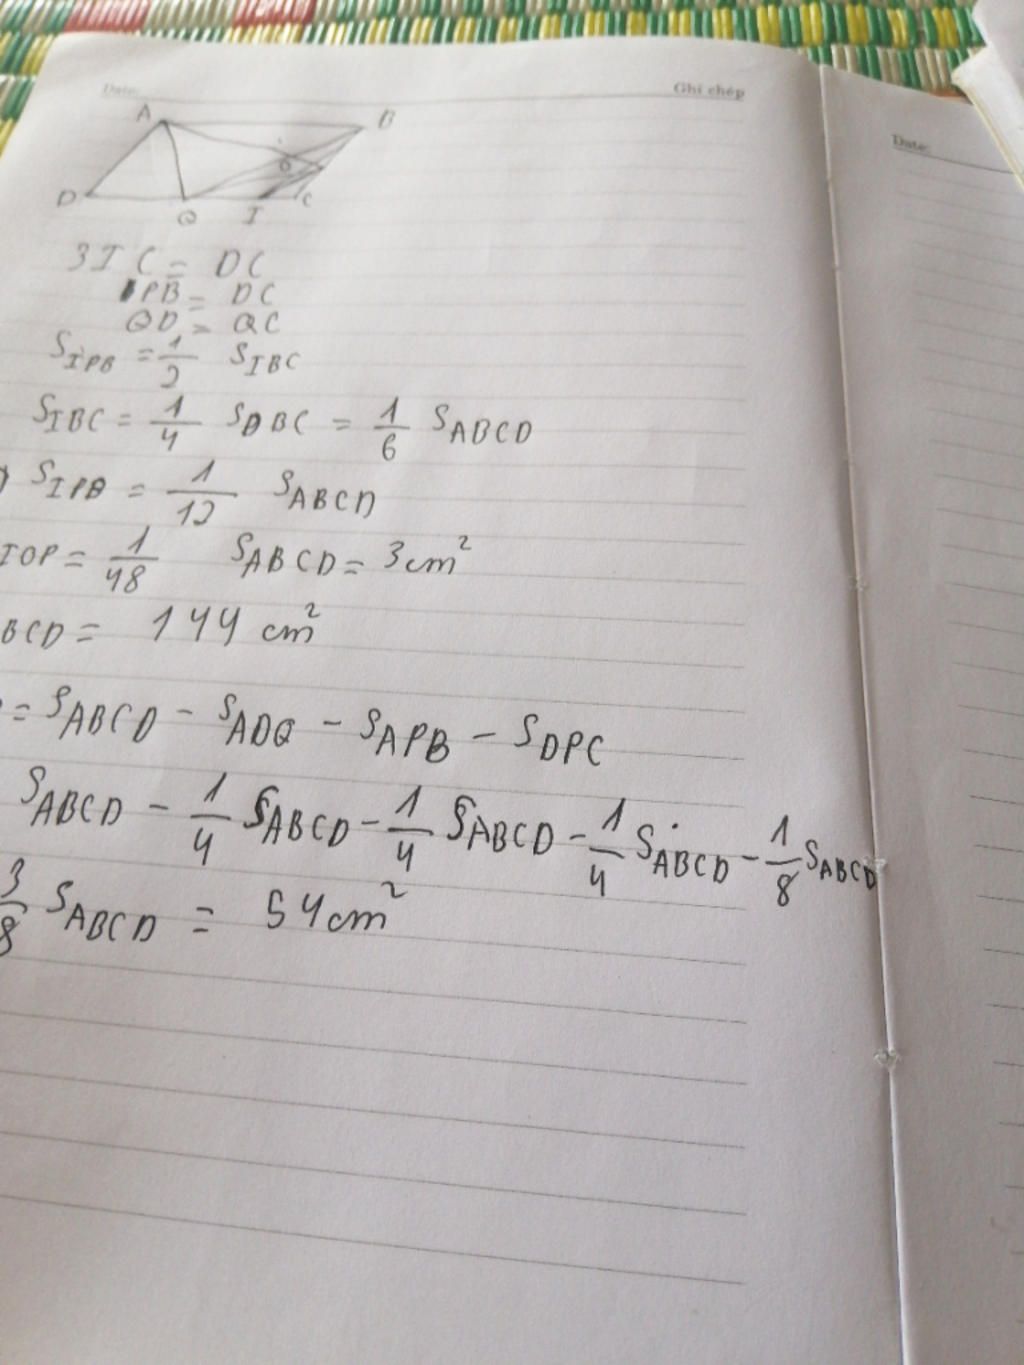 Date: Ghi chép
Date:
A B
O
D Q I C
3IC = DC
PB = DC
QD = QC
S_IPB = 1/2 S_IBC
S_IBC = 1/4 S_DBC = 1/6 S_ABCD
S_IPB = 1/12 S_ABCD
IOP = 1/48 S_ABCD = 3cm²
BCD = 144 cm²
= S_ABCD - S_ADQ - S_APB - S_DPC
S_ABCD - 1/4 S_ABCD - 1/4 S_ABCD - 1/4 S_ABCD - 1/8 S_ABCD
3/8 S_ABCD = 54cm²